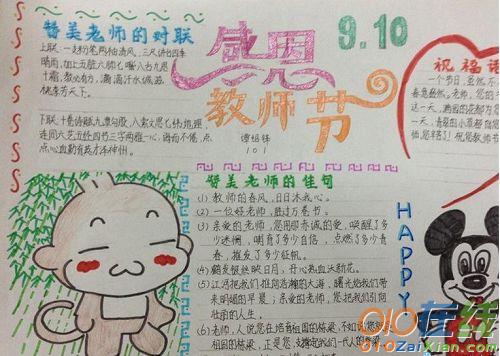 赞美老师的对联
上联：一支粉笔两袖清风，三尺讲台四季
晴雨，加上五脏六腑七嘴八舌九思
十霜，教必有方，滴滴汗水诚滋
桃李芳天下。
下联：十卷诗赋九章勾股，八索文思七纬地理，
连同六艺五经四书三字两雅一心，诲而不倦，点
点心血勤育英才泽神州。
感恩
教师节
9.10
101
祝福语
一个节日，虽然不
这一天，满园的花都为您
赞美老师的佳句
(1) 教师的春风，日日沐我心。
(2) 一位好老师，胜过万卷书。
(3) 亲爱的老师，您用那赤诚的爱，唤醒了多
少迷惘，哺育了多少自信，点燃了多少青
春，摧发了多少征帆。
(4) 鹤发银丝映日月，丹心热血沃新花。
(5) 江河把我们推向浩瀚的大海，曙光给我们带
来明媚的早晨；亲爱的老师，您把我们引向
壮丽的人生。
(6) 老师，人说您在培育祖国的栋梁，不如说您就是
祖国的栋梁，正是您支撑起我们一代人的脊梁！
HAPPY
oio在线
oioZaiXian.com